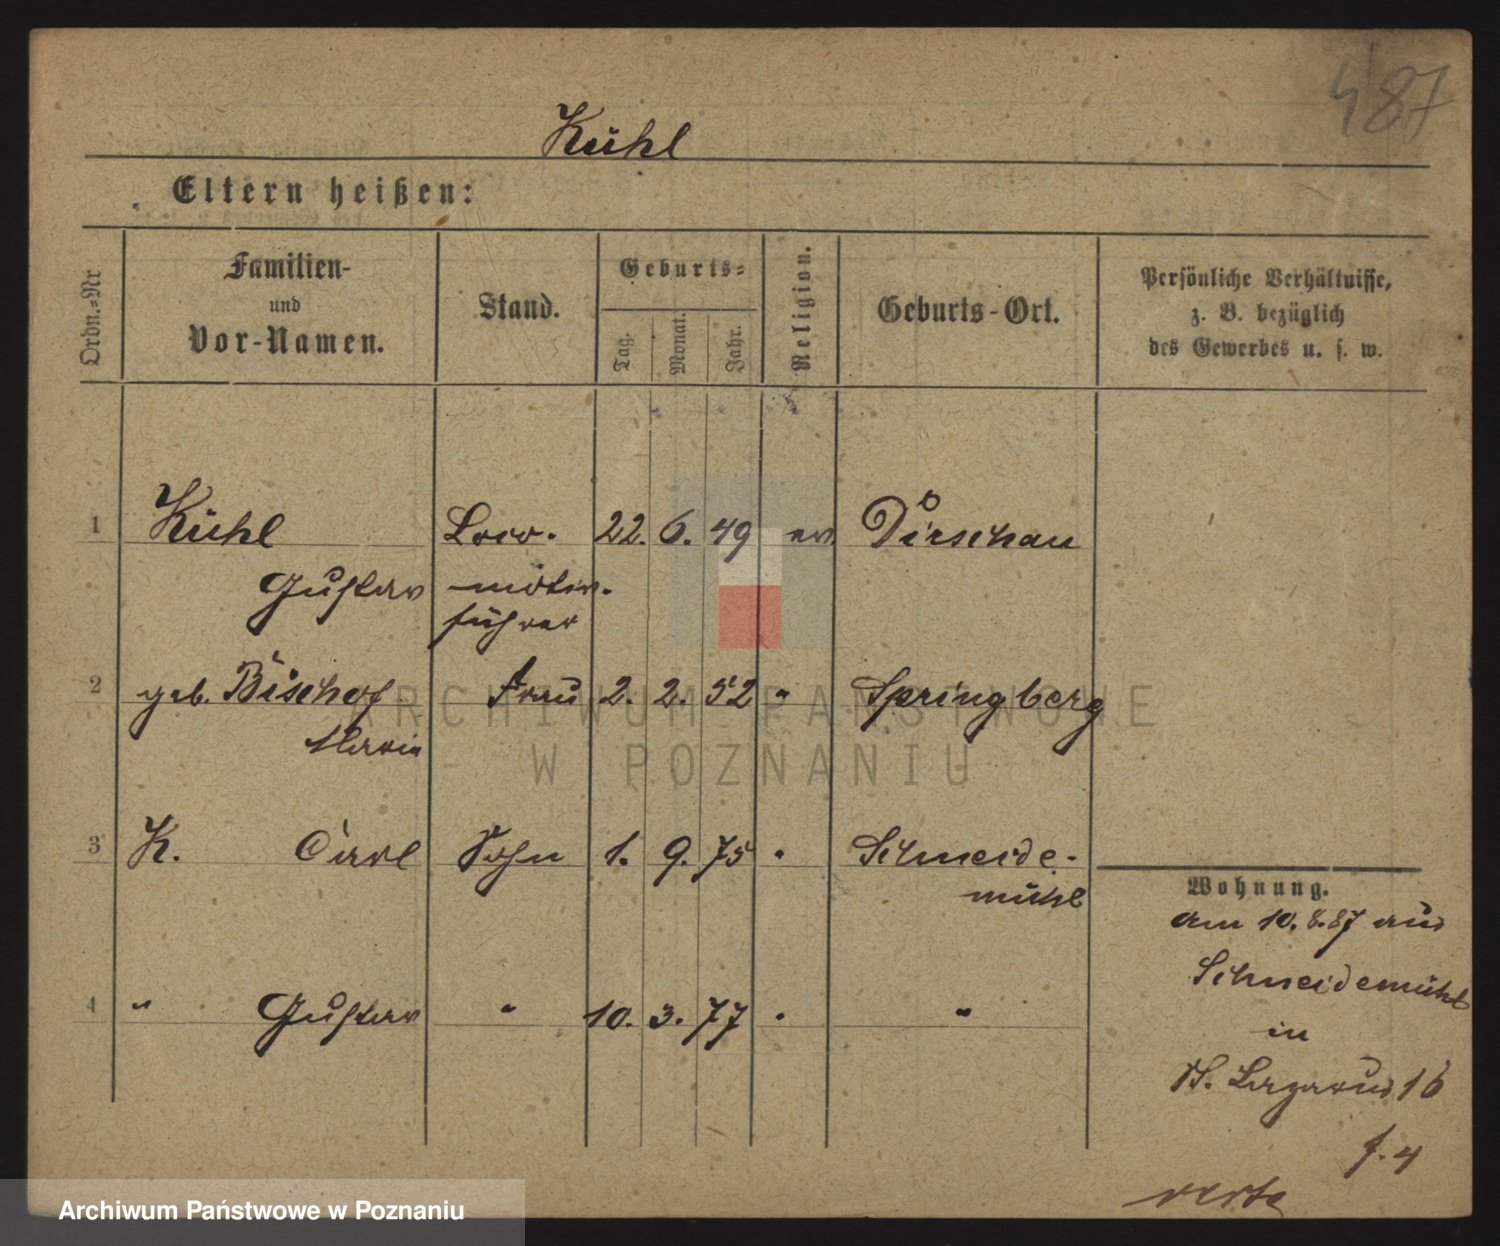 487
Kühl
Eltern heißen:
Ordn.-Nr
Familien-
und
Vor-Namen.
Stand.
Geburts-
Tag.
Monat.
Jahr.
Religion.
Geburts-Ort.
Persönliche Verhältnisse,
z. B. bezüglich
des Gewerbes u. s. w.
1 Kühl Loco- 22. 6. 49 ev. Dirschau
Gustav motiv-
führer
2 geb. Bischof Frau 2. 2. 52 " Springberg
Marie
ARCHIWUM PAŃSTWOWE
W POZNANIU
3 K. Carl Sohn 1. 9. 75 " Schneide-
mühl
Wohnung.
am 10.8.87 aus
Schneidemühl
4 " Gustav " 10. 3. 77 " "
in
St. Lazarus 16
f. 4
verte
Archiwum Państwowe w Poznaniu